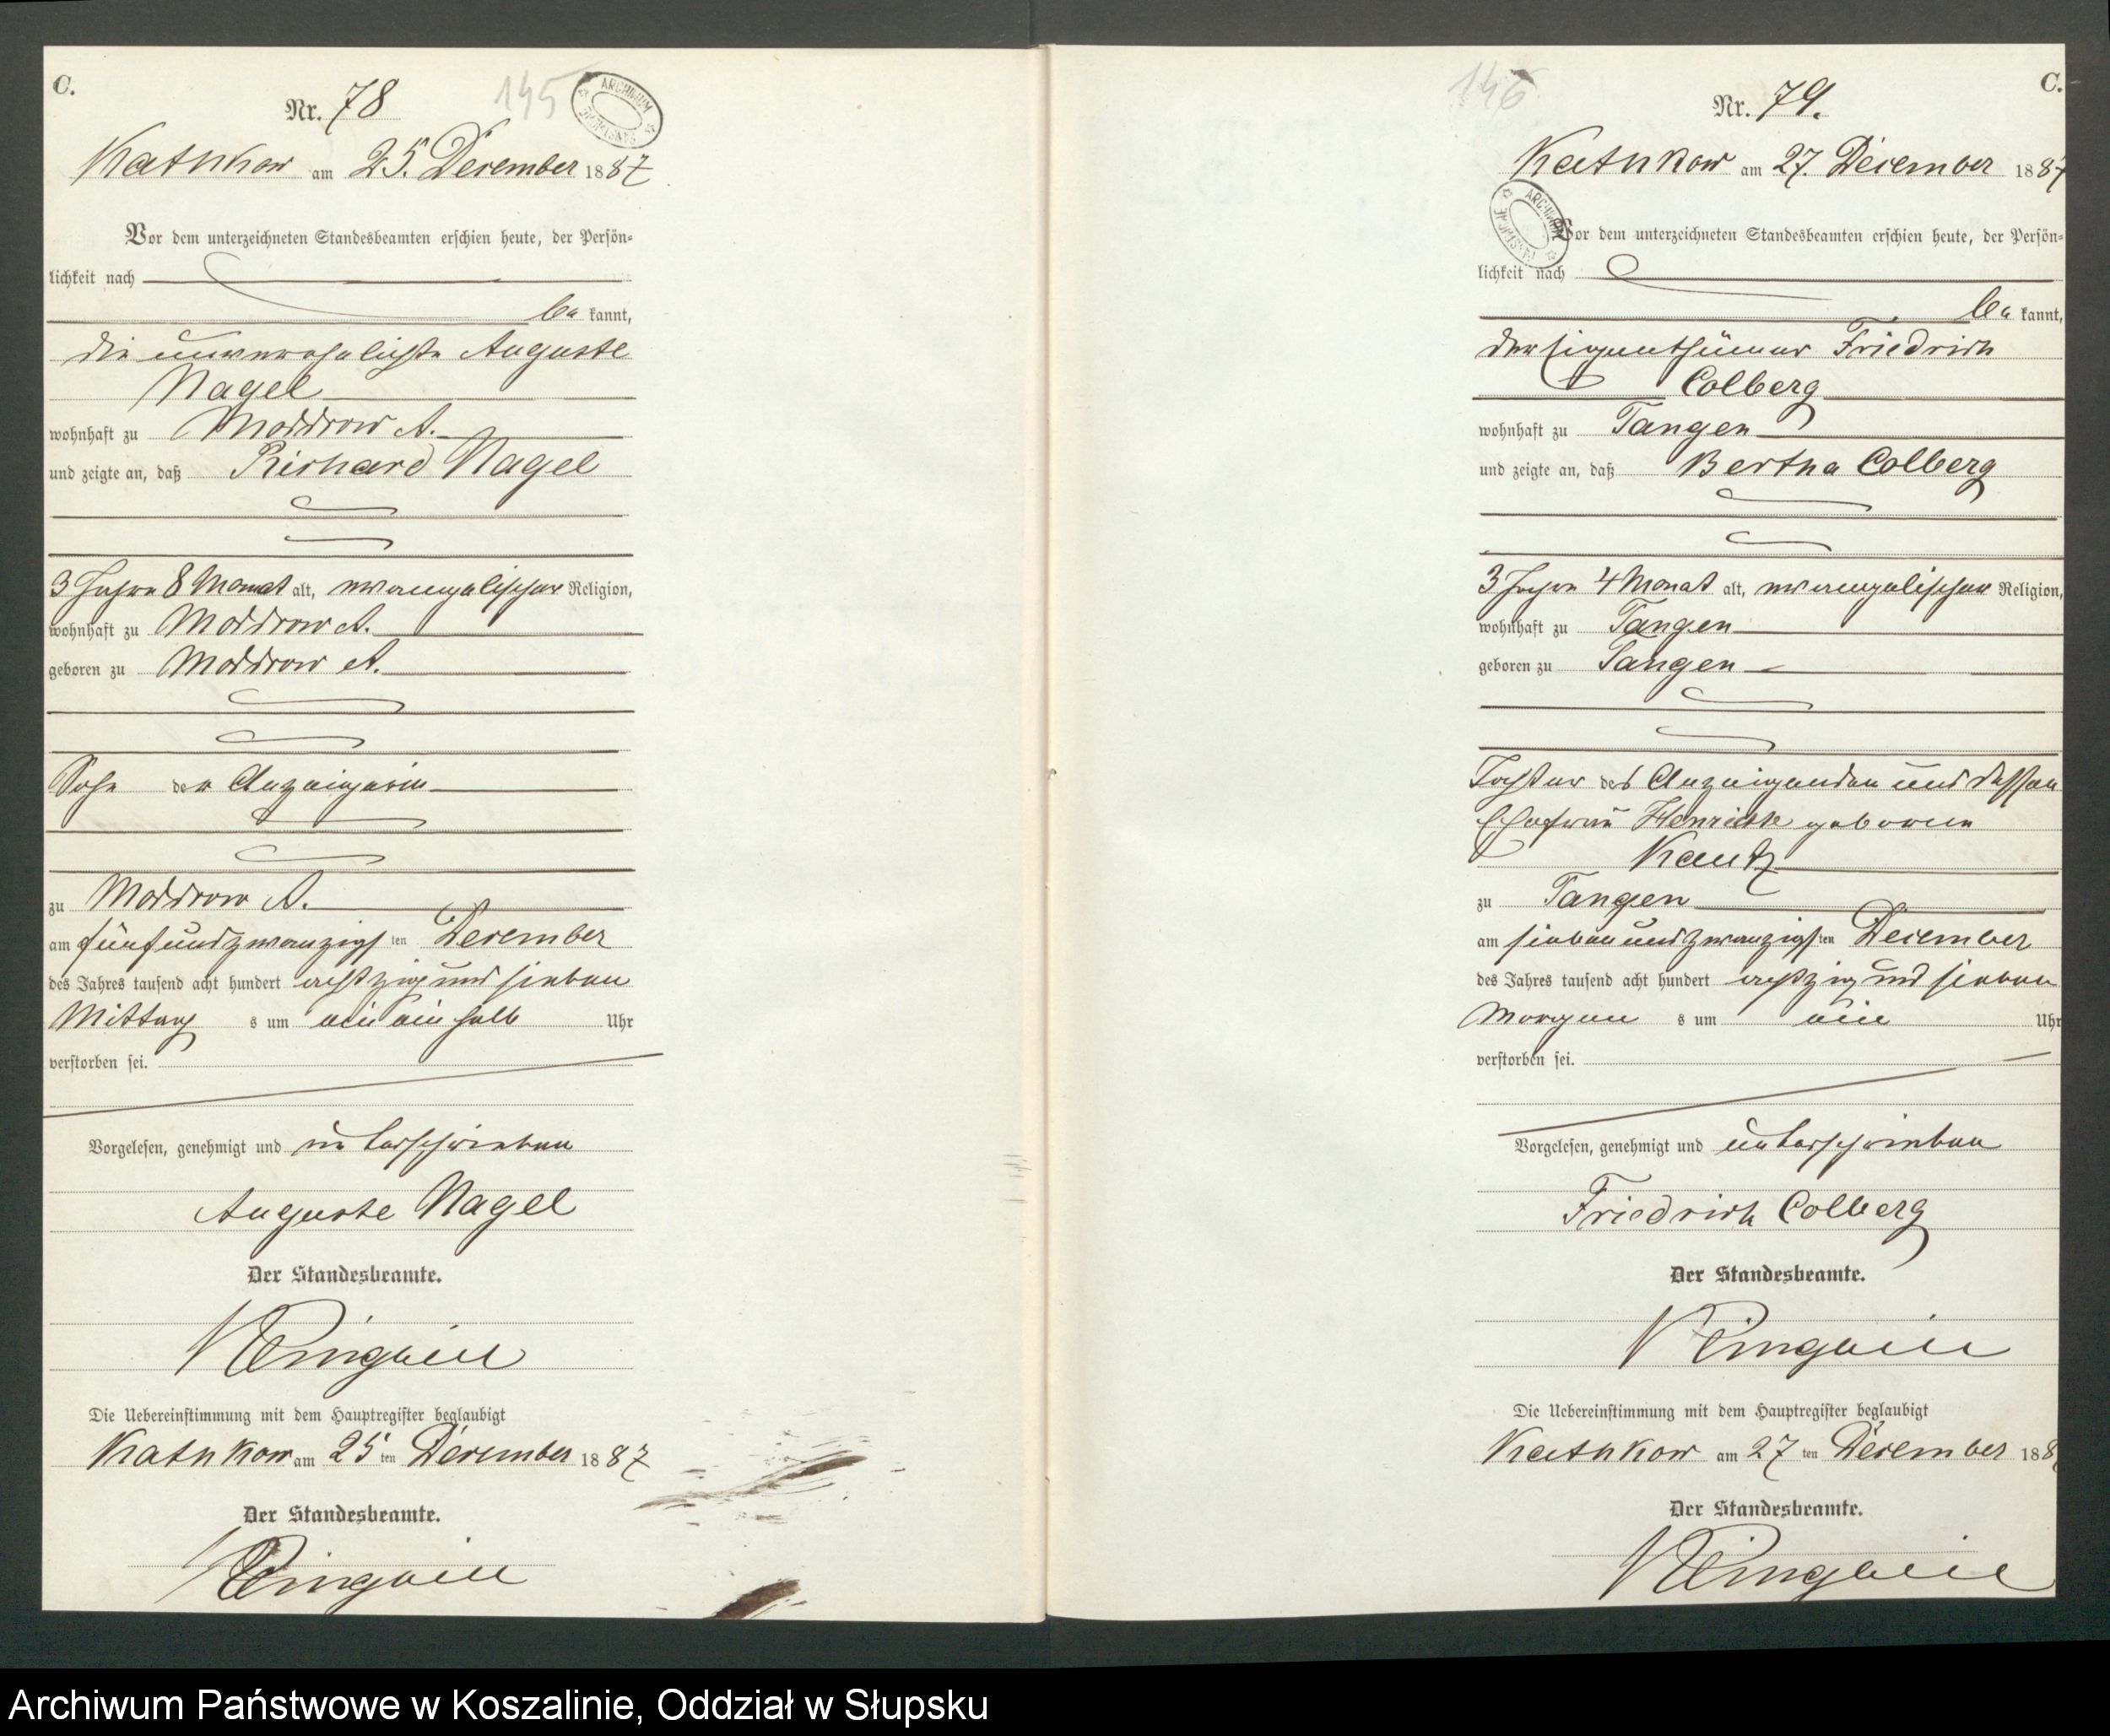 C.
Nr. 78
145
ARCHIWUM PAŃSTWOWE
Kathkow am 25. December 1887
Vor dem unterzeichneten Standesbeamten erschien heute, der Persön-
lichkeit nach
be kannt,
die unverehelichte Auguste
Nagel
wohnhaft zu Moddrow A.
und zeigte an, daß Richard Nagel
3 Jahre 8 Monat alt, evangelischer Religion,
wohnhaft zu Moddrow A.
geboren zu Moddrow A.
Sohn der Anzeigerin
zu Moddrow A.
am fünfundzwanzigsten December
des Jahres tausend acht hundert achtzig und sieben
Mittags um ein ein halb Uhr
verstorben sei.
Vorgelesen, genehmigt und unterschrieben
Auguste Nagel
Der Standesbeamte.
Die Uebereinstimmung mit dem Hauptregister beglaubigt
Kathkow am 25 ten December 1887
Der Standesbeamte.
C.
Nr. 79.
146
ARCHIWUM PAŃSTWOWE
Kathkow am 27. December 1887
Vor dem unterzeichneten Standesbeamten erschien heute, der Persön-
lichkeit nach
be kannt,
der Eigenthümer Friedrich
Colberg
wohnhaft zu Tangen
und zeigte an, daß Bertha Colberg
3 Jahre 4 Monat alt, evangelischer Religion,
wohnhaft zu Tangen
geboren zu Tangen
Tochter des Anzeigenden und dessen
Ehefrau Henriette geborene
Kautz
zu Tangen
am siebenundzwanzigsten December
des Jahres tausend acht hundert achtzig und sieben
Morgens um ein Uhr
verstorben sei.
Vorgelesen, genehmigt und unterschrieben
Friedrich Colberg
Der Standesbeamte.
Die Uebereinstimmung mit dem Hauptregister beglaubigt
Kathkow am 27 ten December 188
Der Standesbeamte.
Archiwum Państwowe w Koszalinie, Oddział w Słupsku